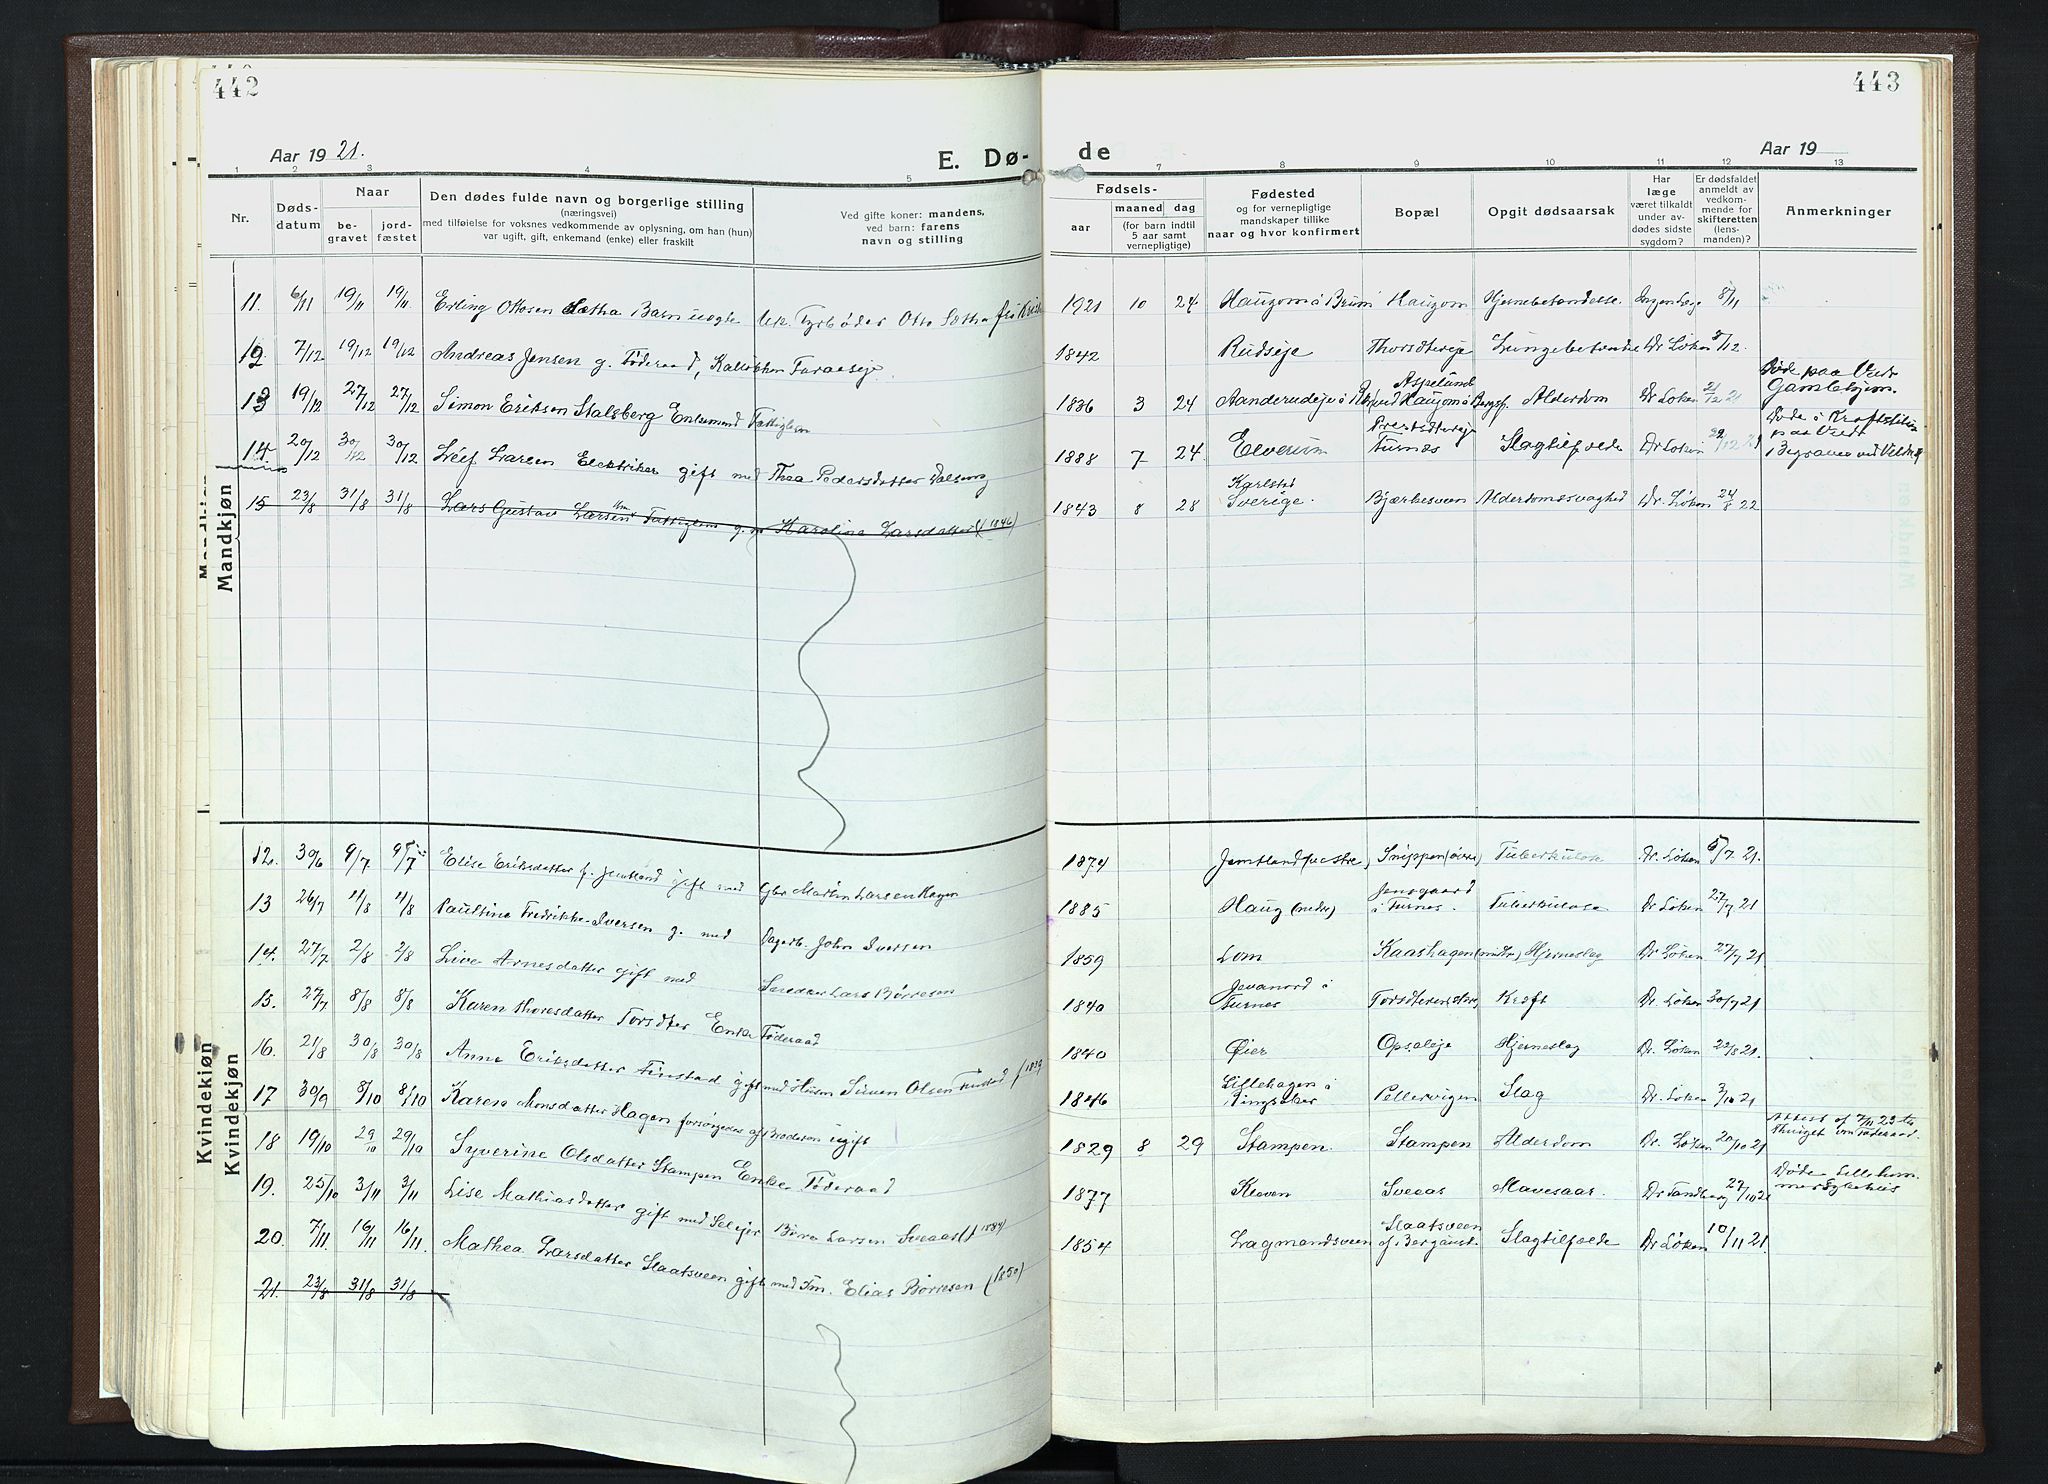 442
Aar 19 21.
E. Dø-
1 2 3 4 5
Nr.
Døds-
datum
Naar
be-
gravet
jord-
fæstet
Den dødes fulde navn og borgerlige stilling
(næringsvei)
med tilføielse for voksnes vedkommende av oplysning, om han (hun)
var ugift, gift, enkemand (enke) eller fraskilt
Ved gifte koner: mandens,
ved barn: farens
navn og stilling
Mandkjøn
11. 6/11 19/11 19/11 Erling Ottosen Sætha Barn uegte
12 7/12 19/12 19/12 Andreas Jensen g. Føderaad,
13 19/12 27/12 27/12 Simon Eriksen Stalsberg Enkemand Fattiglem
14 20/12 30/12 30/12 Leif Larsen Elektriker gift med Thea Pedersdatter
15 23/8 31/8 31/8 Lars Gustav Larsen Fattiglem g. m Karoline Larsdatter (1846)
Kvindekjøn
12. 30/6 9/7 9/7 Elise Eriksdatter f. Jemtland gift med Gbr Martin Larsen Hagen
13 26/7 4/8 4/8 Pauline Fredrikke Iversen g. med Dagarb. John Iversen
14. 27/7 2/8 2/8 Live Arnesdatter gift med Snedker Lars Børresen
15. 27/7 8/8 8/8 Karen Thoresdatter Torsdter Enke Føderaad
16. 21/8 30/8 30/8 Anne Eriksdatter Finstad gift med Husm Simen Olsen Finstad f 1839
17 30/9 8/10 8/10 Karen Monsdatter Hagen forsørgedes af Broderen ugift
18 19/10 29/10 29/10 Syverine Olsdatter Stampen Enke Føderaad
19. 25/10 3/11 3/11 Lise Mathiasdatter gift med Selvejer Børre Larsen Sveaas (f 1884)
20. 7/11. 16/11 16/11. Mathea Larsdatter Slaatsveen gift med Fm. Elias Børresen (1850)
21. 23/8 31/8 31/8
443
de
Aar 19
6 7 8 9 10 11 12 13
Fødsels-
aar
maaned
dag
(for barn indtil
5 aar samt
vernepligtige)
Fødested
og for vernepligtige
mandskaper tillike
naar og hvor konfirmert
Bopæl
Opgit dødsaarsak
Har
læge
været tilkaldt
under av-
dødes sidste
sygdom?
Er dødsfaldet
anmeldt av
vedkom-
mende for
skifteretten
(lens-
manden)?
Anmerkninger
1921 10 24 Haugom i Brum Haugom Hjernebetændelse. Ingen Læge 8/11
1842 Rudseje Thorsdtereje Lungebetændse Dr Løken 8/12.
Døde paa Vedt
Gamlehjem.
Aspelund
1836 3 24 Aanderudeje ved Haugom i Bergsf. Alderdom Dr Løken 21/12 21
Døde i
paa Vedt
Prestsdtereje
1888 7 24 Elverum Furnes Slagtilfælde Dr Løken 22/12 21
Karlstad
1843 8 28 Sverige. Bjærkesveen Alderdomssvaghed Dr. Løken 24/8 22
1874 Jemtland (vestre) Snippen (øvre) Tuberkulose Dr. Løken 5/7. 21.
Jensgaard
1885 Haug (nedre) i Furnes. Tuberkulose Dr Løken 27/7 21
1859 Lom Kaashagen (nedre) Hjerneslag Dr Løken 27/7 21
i
1840 Furnes Kreft Dr. Løken 30/7 21
1840 Øier Opsaleje Hjerneslag Dr. Løken 22/8 21.
Lillehagen i
1846 Ringsaker Pellervigen Slag Dr. Løken 3/10 21
Attest af 7/11 23 til
1829 8 29 Stampen. Stampen Alderdom Dr. Løken 20/10 21
Døde Lilleham-
mer Sykehus
1877 Kleven Sveaas Mavesaar. Dr Tandberg 27/10 21
Slaatsveen
1854 Lagmandsveen Slagtilfælde Dr Løken 10/11 21.